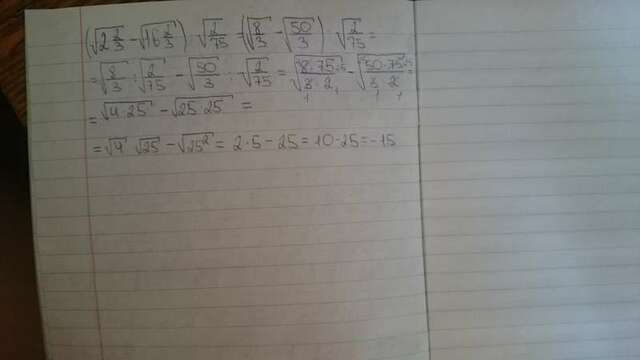 (√2 2/3 - √16 2/3) : √2/75 = (√8/3 - √50/3) : √2/75 =
= √8/3 : √2/75 - √50/3 : √2/75 = √8·75/3·2 - √50·75/3·2 =
= √4·25 - √25·25 =
= √4 √25 - √25² = 2·5 - 25 = 10-25 = -15